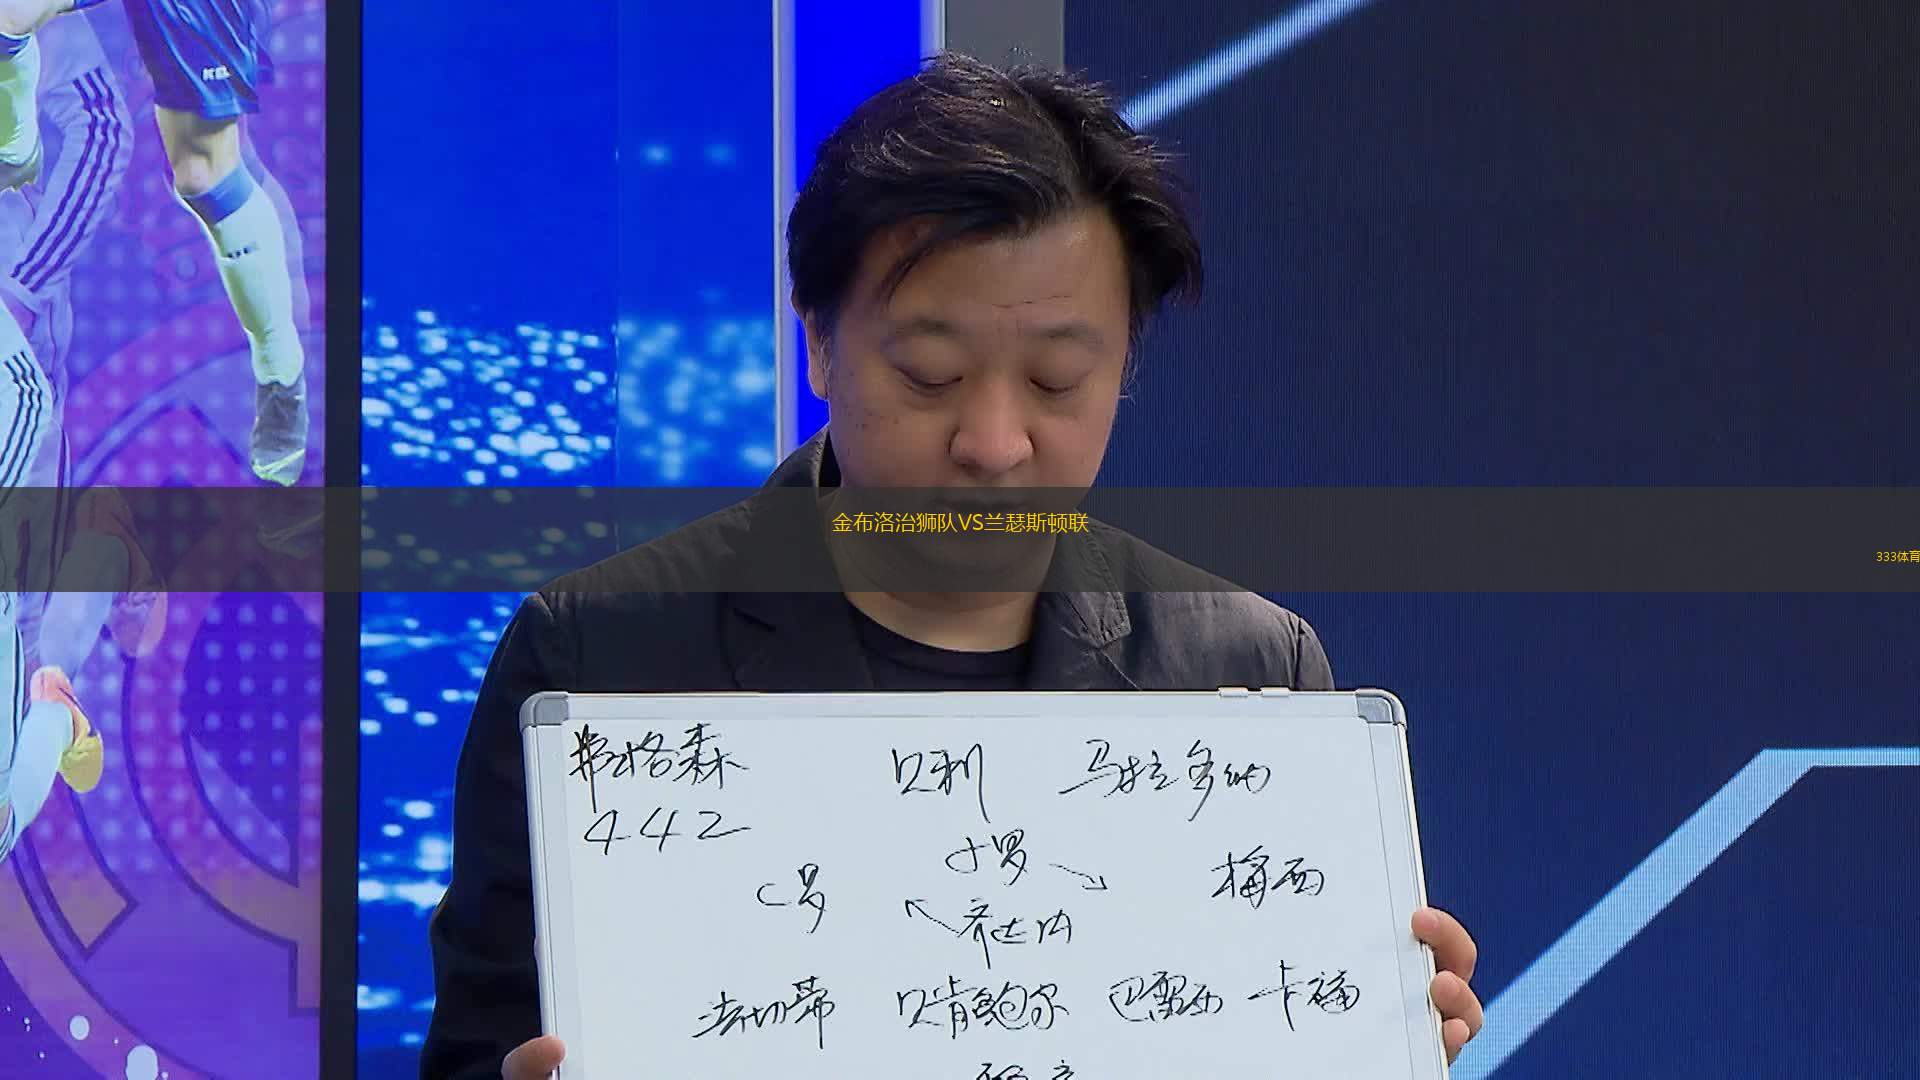 KEL
金布洛治狮队VS兰瑟斯顿联
333体育
弗格森 贝利 马拉多纳
442
小罗
C罗 梅西
齐达内
法切蒂 贝肯鲍尔 巴雷西 卡福